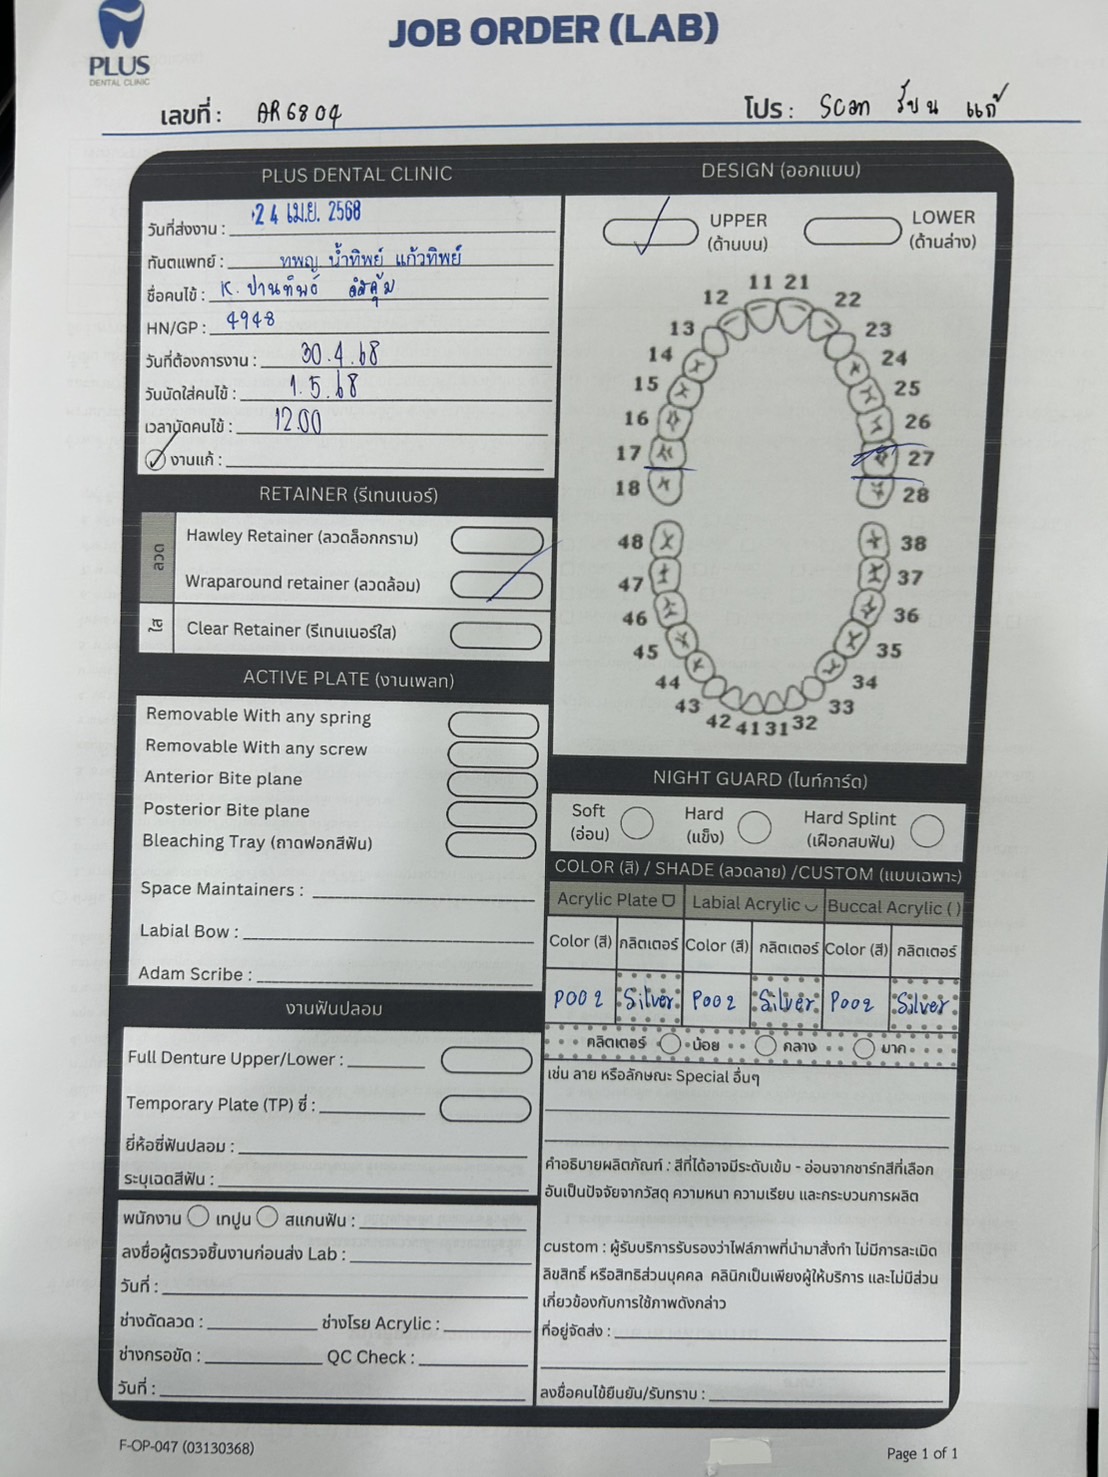 PLUS
DENTAL CLINIC
JOB ORDER (LAB)
เลขที่ : AR6804
โปร : Scan ร้บน แก้
PLUS DENTAL CLINIC
วันที่ส่งงาน : 24 เม.ย. 2568
ทันตแพทย์ : ทพญ น้ำทิพย์ แก้วทิพย์
ชื่อคนไข้ : K. ปานทิพย์
HN/GP : 4948
วันที่ต้องการงาน : 30.4.68
วันนัดใส่คนไข้ : 1.5.68
เวลานัดคนไข้ : 12.00
งานแก้ :
RETAINER (รีเทนเนอร์)
ลวด
Hawley Retainer (ลวดล็อกกราม)
Wraparound retainer (ลวดล้อม)
ใส
Clear Retainer (รีเทนเนอร์ใส)
ACTIVE PLATE (งานเพลท)
Removable With any spring
Removable With any screw
Anterior Bite plane
Posterior Bite plane
Bleaching Tray (ถาดฟอกสีฟัน)
Space Maintainers :
Labial Bow :
Adam Scribe :
งานฟันปลอม
Full Denture Upper/Lower :
Temporary Plate (TP) ซี่ :
ยี่ห้อซี่ฟันปลอม :
ระบุเฉดสีฟัน :
พนักงาน เทปูน สแกนฟัน :
ลงชื่อผู้ตรวจชิ้นงานก่อนส่ง Lab :
วันที่ :
ช่างดัดลวด : ช่างโรย Acrylic :
ช่างกรอขัด : QC Check :
วันที่ :
DESIGN (ออกแบบ)
UPPER
(ด้านบน)
LOWER
(ด้านล่าง)
11 21
12 22
13 23
14 24
15 25
16 26
17 27
18 28
48 38
47 37
46 36
45 35
44 34
43 33
42 41 31 32
NIGHT GUARD (ไนท์การ์ด)
Soft
(อ่อน)
Hard
(แข็ง)
Hard Splint
(เฝือกสบฟัน)
COLOR (สี) / SHADE (ลวดลาย) /CUSTOM (แบบเฉพาะ)
Acrylic Plate Labial Acrylic Buccal Acrylic ( )
Color (สี) กลิตเตอร์ Color (สี) กลิตเตอร์ Color (สี) กลิตเตอร์
P002 Silver P002 Silver P002 Silver
คลิตเตอร์ น้อย กลาง มาก
เช่น ลาย หรือลักษณะ Special อื่นๆ
คำอธิบายผลิตภัณฑ์ : สีที่ได้อาจมีระดับเข้ม - อ่อนจากชาร์ทสีที่เลือก
อันเป็นปัจจัยจากวัสดุ ความหนา ความเรียบ และกระบวนการผลิต
custom : ผู้รับบริการรับรองว่าไฟล์ภาพที่นำมาสั่งทำ ไม่มีการละเมิด
ลิขสิทธิ์ หรือสิทธิส่วนบุคคล คลินิกเป็นเพียงผู้ให้บริการ และไม่มีส่วน
เกี่ยวข้องกับการใช้ภาพดังกล่าว
ที่อยู่จัดส่ง :
ลงชื่อคนไข้ยืนยัน/รับทราบ :
F-OP-047 (03130368)
Page 1 of 1